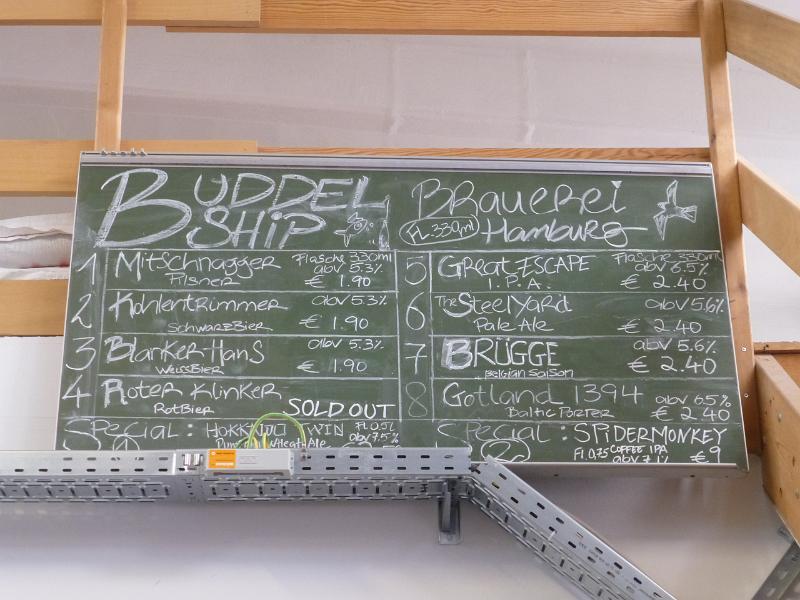 BUDDEL SHIP
1 Mitschnagger Flasche 330ml
Pilsner abv 5.3%
€ 1.90
2 Kohlentrimmer abv 5.3%
Schwarzbier € 1.90
3 Blanker Hans abv 5.3%
Weissbier € 1.90
4 Roter Klinker
Rotbier SOLD OUT
Special: HOKKAIDO TWIN Fl 0,5L
abv 7.5%
Ale
Brauerei
FL. 330ml Hamburg
5 Great ESCAPE Flasche 330ml
I.P.A. abv 6.5%
€ 2.40
6 The SteelYard abv 5.6%
Pale Ale € 2.40
7 BRÜGGE abv 5.6%
Belgian Saison € 2.40
8 Gotland 1394 abv 6.5%
Baltic Porter € 2.40
Special: SPiDERMONKEY
Fl 0,75 COFFEE IPA € 9
abv 7.1%